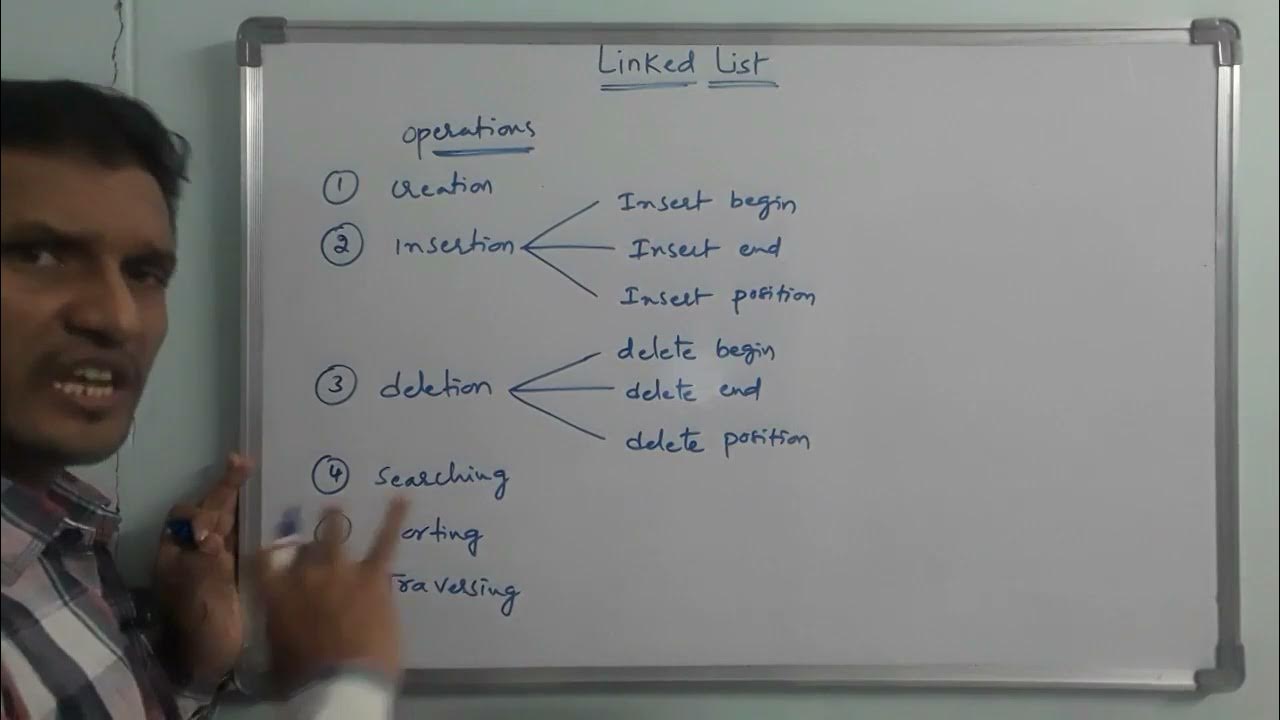 Linked List
operations
① creation
② insertion
Insert begin
Insert end
Insert position
③ deletion
delete begin
delete end
delete position
④ searching
orting
Traversing